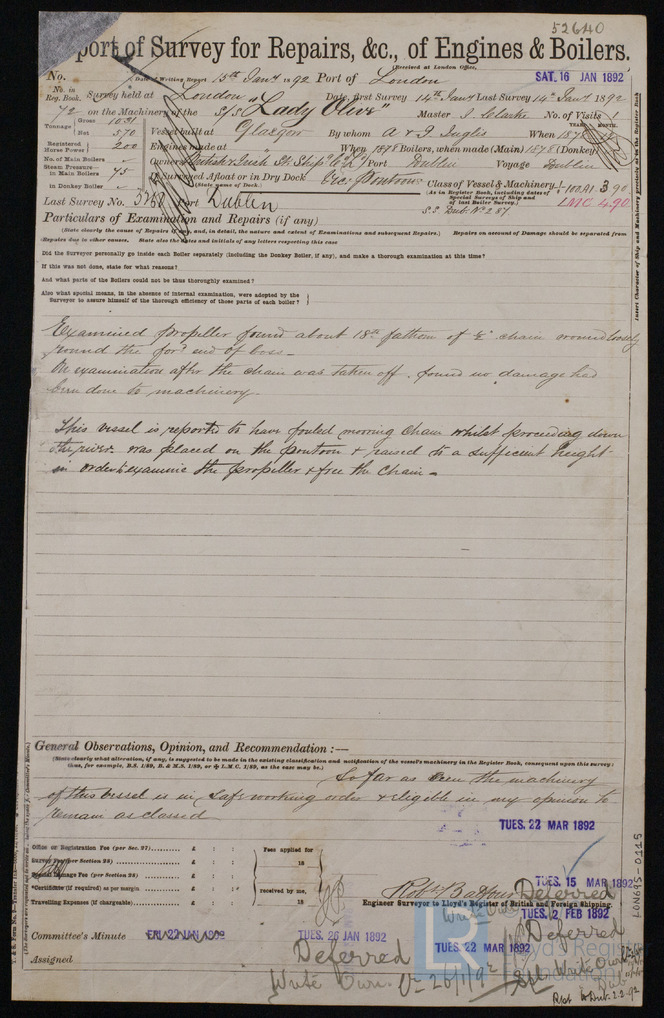 52640
port of Survey for Repairs, &c., of Engines & Boilers.
(Received at London Office,
No. Date of Writing Report 15th Jany 1892 Port of London SAT. 16 JAN 1892
No. in Reg. Book. Survey held at London Date, first Survey 14th Jany Last Survey 14th Jany 1892
72 on the Machinery of the S/S "Lady Olive" Master J. Clarke No. of Visits 1
Tonnage Gross 1031 Net 570 Vessel built at Glasgow By whom A & J. Inglis When 1878
YEAR. MONTH.
Registered Horse Power 200 Engines made at " When 1878 Boilers, when made (Main) 1878 (Donkey)
No. of Main Boilers Owners British & Irish St. Ship Co. Ld Port Dublin Voyage Dublin
Steam Pressure in Main Boilers 75 If Surveyed Afloat or in Dry Dock Vic: Pontoon
(State name of Dock.)
in Donkey Boiler Class of Vessel & Machinery 100A1 3.90
(As in Register Book, including dates of Special Surveys of Ship and of last Boiler Survey.)
LMC 4.90
S.S. Dub. No 2 87
Last Survey No. 3260 Port Dublin
Particulars of Examination and Repairs (if any)
(State clearly the cause of Repairs if any, and, in detail, the nature and extent of Examinations and subsequent Repairs.) Repairs on account of Damage should be separated from
Repairs due to other causes. State also the dates and initials of any letters respecting this case
Did the Surveyor personally go inside each Boiler separately (including the Donkey Boiler, if any), and make a thorough examination at this time?
If this was not done, state for what reasons?
And what parts of the Boilers could not be thus thoroughly examined?
Also what special means, in the absence of internal examination, were adopted by the
Surveyor to assure himself of the thorough efficiency of those parts of each boiler?
Examined propeller found about 18 fathom of ½" chain wound loosely
round the for'd end of boss.
On examination after the chain was taken off. found no damage had
been done to machinery.
This vessel is reported to have fouled mooring chain whilst proceeding down
the river. was placed on the pontoon & raised to a sufficient height
in order to examine the propeller & free the chain.
General Observations, Opinion, and Recommendation :—
(State clearly what alteration, if any, is suggested to be made in the existing classification and notification of the vessel's machinery in the Register Book, consequent upon this survey:
thus, for example, B.S. 1/89, B. & M.S. 1/89, or L.M.C. 1/89, as the case may be.)
So far as seen the machinery
of this vessel is in safe working order & eligible in my opinion to
remain as classed
TUES. 22 MAR 1892
Office or Registration Fee (per Sec. 27) £ : :
Survey Fee (per Section 28) £ : :
Special Damage Fee (per Section 28) £ : :
*Certificate (if required) as per margin £ : :
Travelling Expenses (if chargeable) £ : :
Fees applied for
18
received by me,
18
Robt Balfour
Engineer Surveyor to Lloyd's Register of British and Foreign Shipping.
TUES. 15 MAR 1892
Deferred
Write Own
TUES. 2 FEB 1892
Deferred
Committee's Minute FRI 22 JAN 1892 TUES. 26 JAN 1892
TUES. 22 MAR 1892
Assigned
Deferred
Write Own. 26/1/92
Write Own
Rpt Dub. 2.2.92
LR
Lloyd's Register
Foundation
LON695-0115
Insert Character of Ship and Machinery precisely as in the Register Book